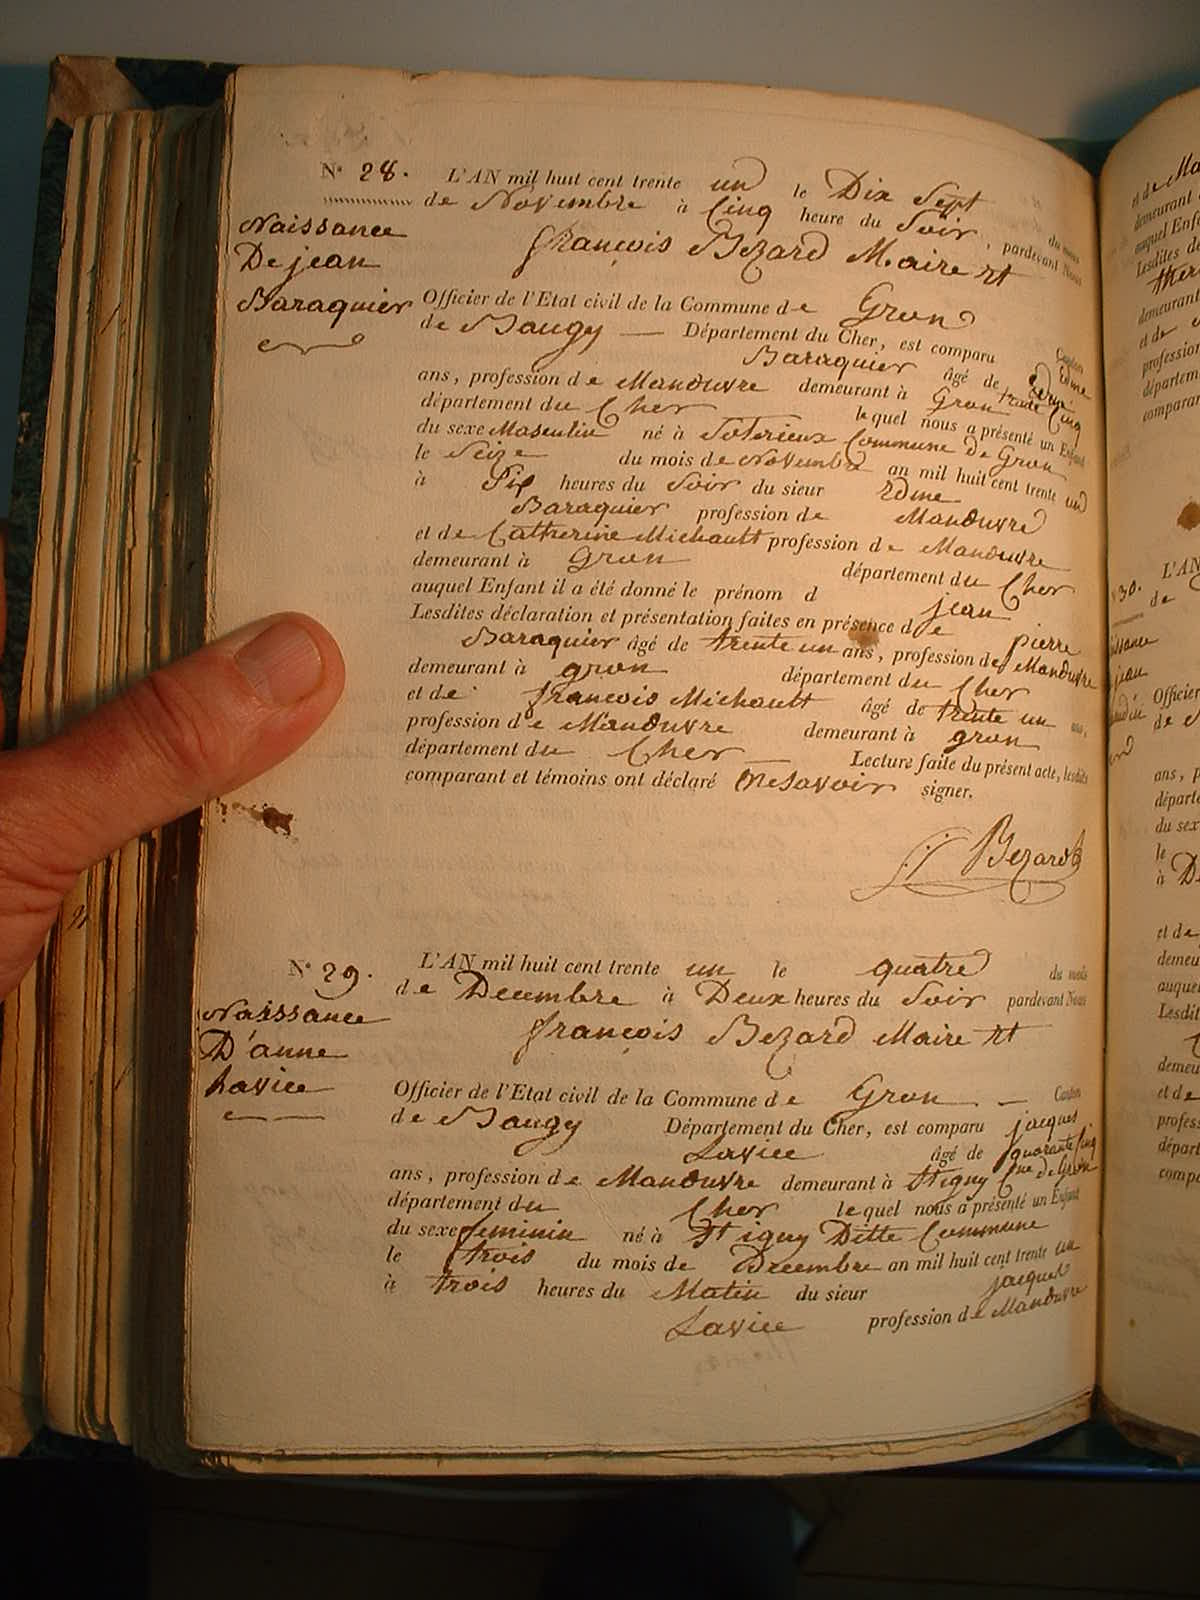 N° 28.
Naissance
De jean
Baraquier
L'AN mil huit cent trente un le Dix Sept du mois
de Novembre à Cinq heure du Soir, pardevant Nous
françois Bezard Maire et
Officier de l'Etat civil de la Commune de Gron Canton
de Baugy — Département du Cher, est comparu Edme
Baraquier âgé de trente Cinq
ans, profession de Manœuvre demeurant à Gron
département du Cher lequel nous a présenté un Enfant
du sexe Masculin né à Commune de Gron
le Seize du mois de Novembre an mil huit cent trente un
à Six heures du Soir du sieur Edme
Baraquier profession de Manœuvre
et de Catherine Michault profession de Manœuvre
demeurant à Gron département du Cher
auquel Enfant il a été donné le prénom d jean
Lesdites déclaration et présentation faites en présence de pierre
Baraquier âgé de trente un ans, profession de Manœuvre
demeurant à gron département du Cher
et de françois Michault âgé de trente un ans,
profession de Manœuvre demeurant à gron
département du Cher — Lecture faite du présent acte, lesdits
comparant et témoins ont déclaré Ne Savoir signer.
Bezard
N° 29.
Naissance
D'anne
Lavice
L'AN mil huit cent trente un le quatre du mois
de Decembre à Deux heures du Soir pardevant Nous
françois Bezard Maire et
Officier de l'Etat civil de la Commune de Gron — Canton
de Baugy Département du Cher, est comparu jacques
Lavice âgé de quarante Cinq
ans, profession de Manœuvre demeurant à Ne de Gron
département du Cher lequel nous a présenté un Enfant
du sexe feminin né à Ditte Commune
le trois du mois de Decembre an mil huit cent trente un
à trois heures du Matin du sieur jacques
Lavice profession de Manœuvre
30.
L'AN
de
Officier
ans, p
départe
du sex
le
à
et de
demeu
auquel
Lesdit
demeu
et de
profess
départ
comp